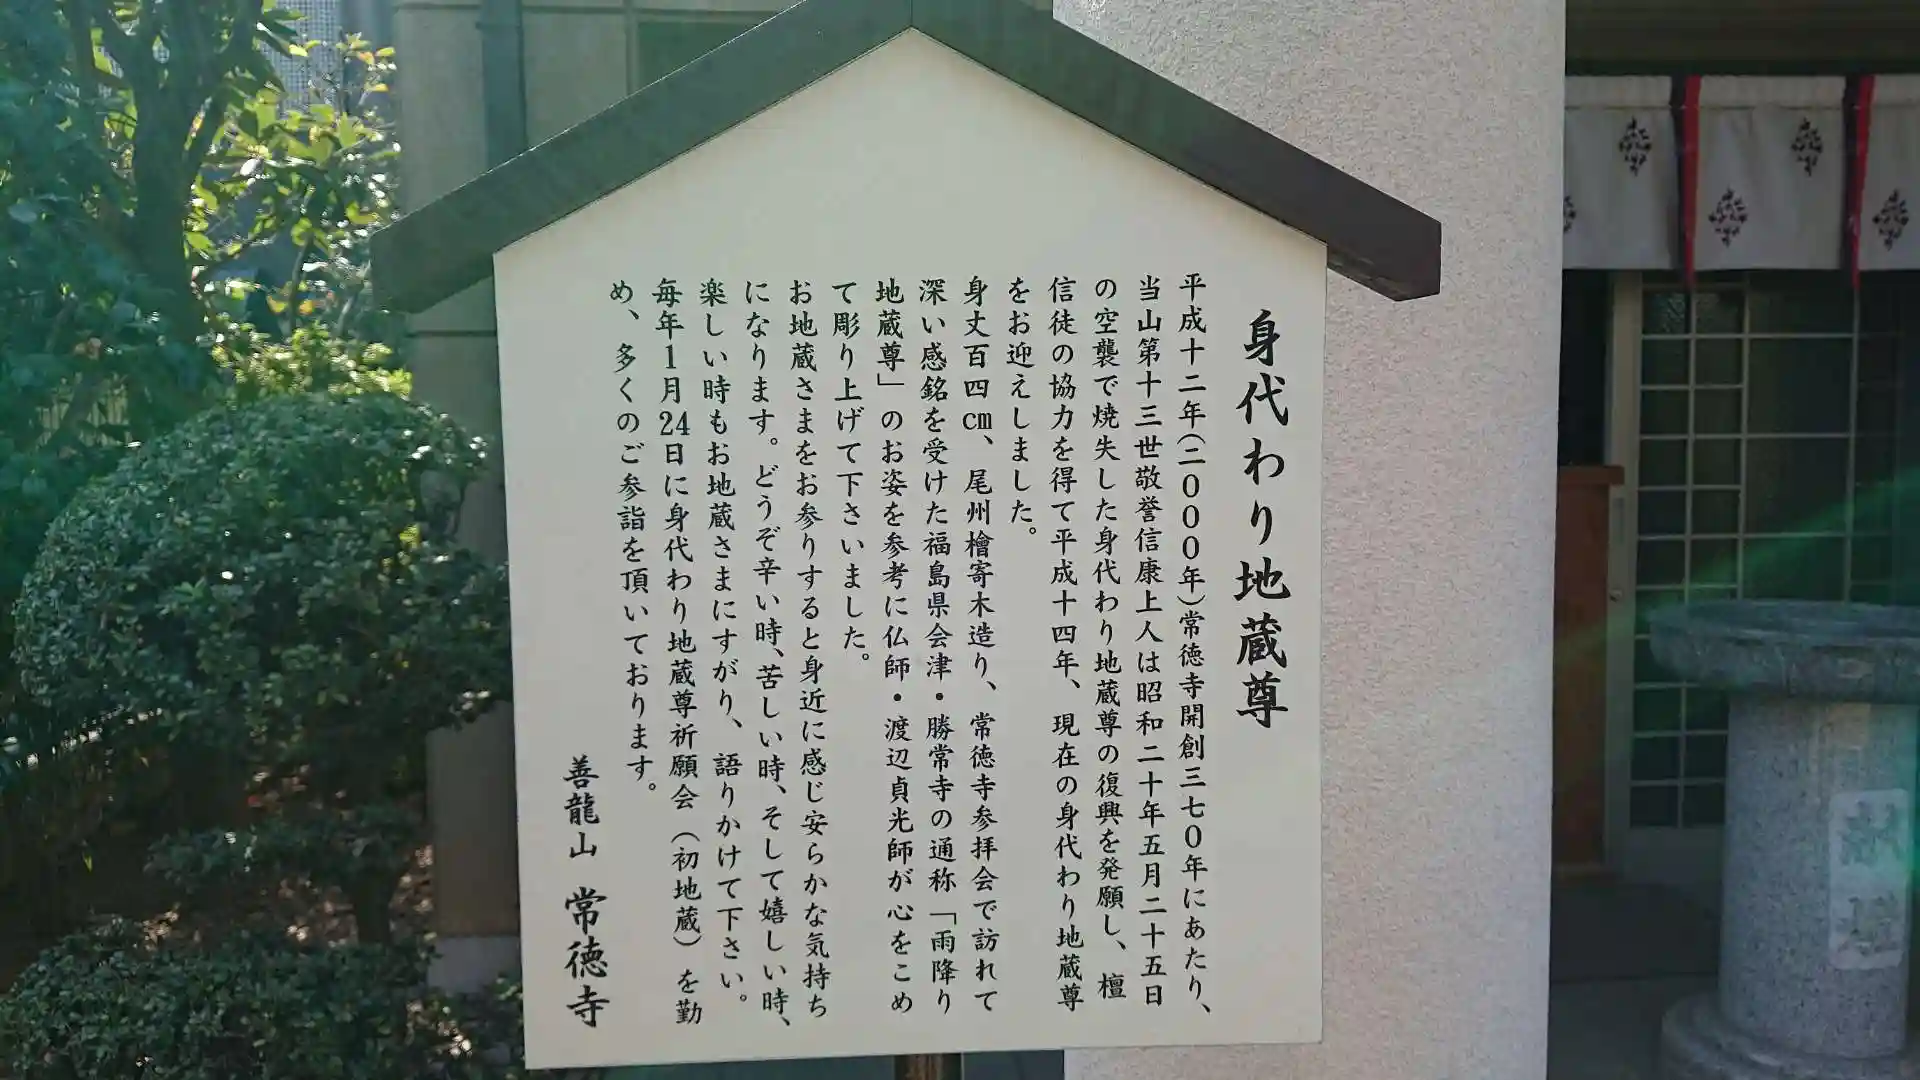 身代わり地蔵尊
平成十二年(二〇〇〇年)常徳寺開創三七〇年にあたり、
当山第十三世敬誉信康上人は昭和二十年五月二十五日
の空襲で焼失した身代わり地蔵尊の復興を発願し、檀
信徒の協力を得て平成十四年、現在の身代わり地蔵尊
をお迎えしました。
身丈百四cm、尾州檜寄木造り、常徳寺参拝会で訪れて
深い感銘を受けた福島県会津・勝常寺の通称「雨降り
地蔵尊」のお姿を参考に仏師・渡辺貞光師が心をこめ
て彫り上げて下さいました。
お地蔵さまをお参りすると身近に感じ安らかな気持ち
になります。どうぞ辛い時、苦しい時、そして嬉しい時、
楽しい時もお地蔵さまにすがり、語りかけて下さい。
毎年1月24日に身代わり地蔵尊祈願会（初地蔵）を勤
め、多くのご参詣を頂いております。
善龍山 常徳寺